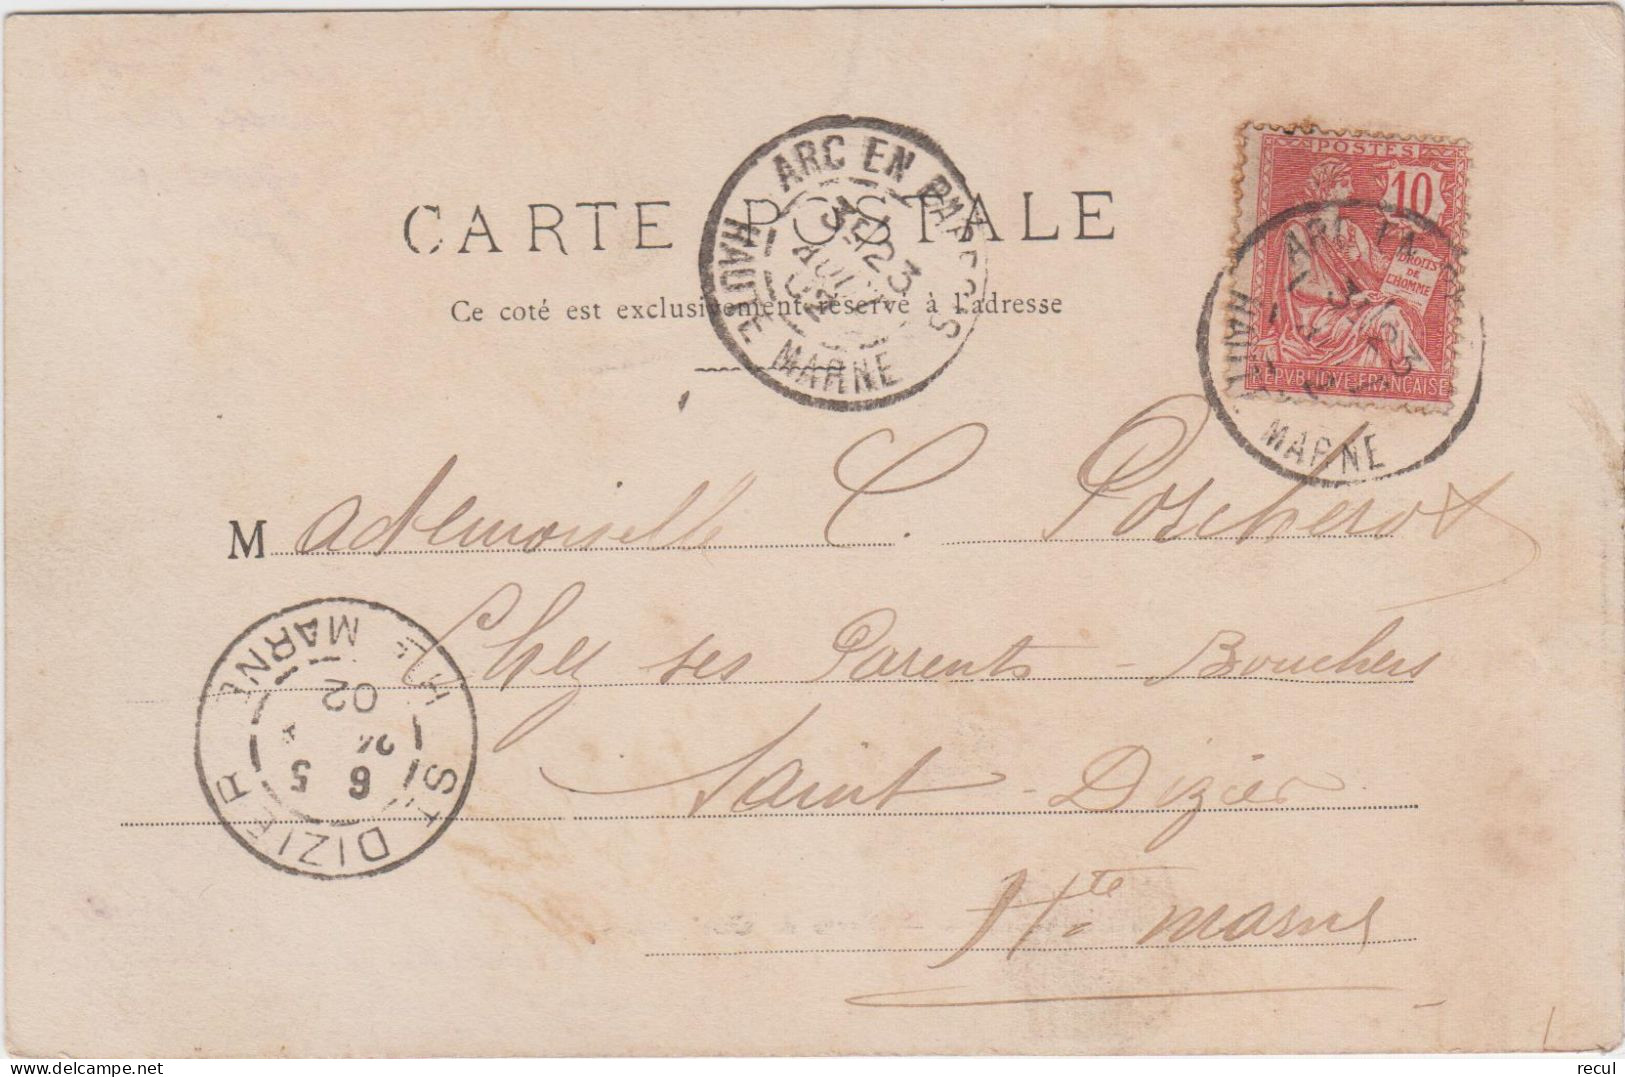 CARTE POSTALE
Ce coté est exclusivement réservé à l'adresse
ARC EN BARROIS
3E 23
AOUT
02
HAUTE MARNE
POSTES
10
DROITS
DE
L'HOMME
REPVBLIQUE FRANÇAISE
ARC EN
HAUTE MARNE
Mademoiselle C. Poscherot
Chez ses Parents - Bouchers
Saint-Dizier
Hte Marne
ST DIZIER
6 5
24
02
HTE MARNE
recul